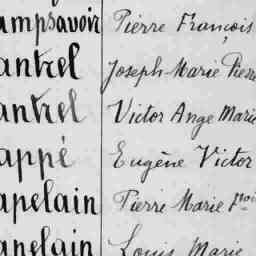 ampsavoir Pierre François
antrel Joseph Marie Pierre
antrel Victor Ange Marie
appé Eugène Victor
apelain Pierre Marie
apelain Louis Marie